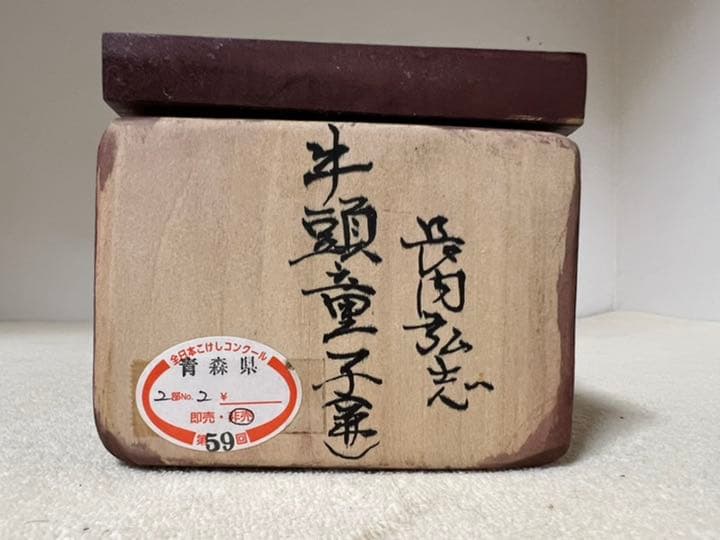 長内弘志
牛頭童子
全日本こけしコンクール
青森県
2部No.2 ¥
即売・非売
第59回